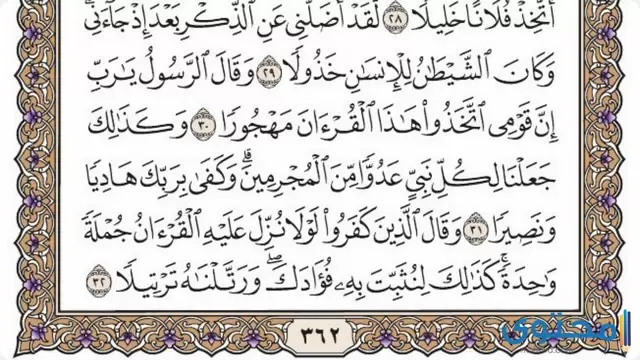 أَتَّخِذْ فُلَانًا خَلِيلًا ٢٨ لَّقَدْ أَضَلَّنِي عَنِ الذِّكْرِ بَعْدَ إِذْ جَاءَنِي ۗ
وَكَانَ الشَّيْطَٰنُ لِلْإِنسَٰنِ خَذُولًا ٢٩ وَقَالَ الرَّسُولُ يَٰرَبِّ
إِنَّ قَوْمِي اتَّخَذُوا هَٰذَا الْقُرْءَانَ مَهْجُورًا ٣٠ وَكَذَٰلِكَ
جَعَلْنَا لِكُلِّ نَبِيٍّ عَدُوًّا مِّنَ الْمُجْرِمِينَ ۗ وَكَفَىٰ بِرَبِّكَ هَادِيًا
وَنَصِيرًا ٣١ وَقَالَ الَّذِينَ كَفَرُوا لَوْلَا نُزِّلَ عَلَيْهِ الْقُرْءَانُ جُمْلَةً
وَٰحِدَةً ۚ كَذَٰلِكَ لِنُثَبِّتَ بِهِ فُؤَادَكَ ۖ وَرَتَّلْنَٰهُ تَرْتِيلًا ٣٢
٣٦٢
محتوى